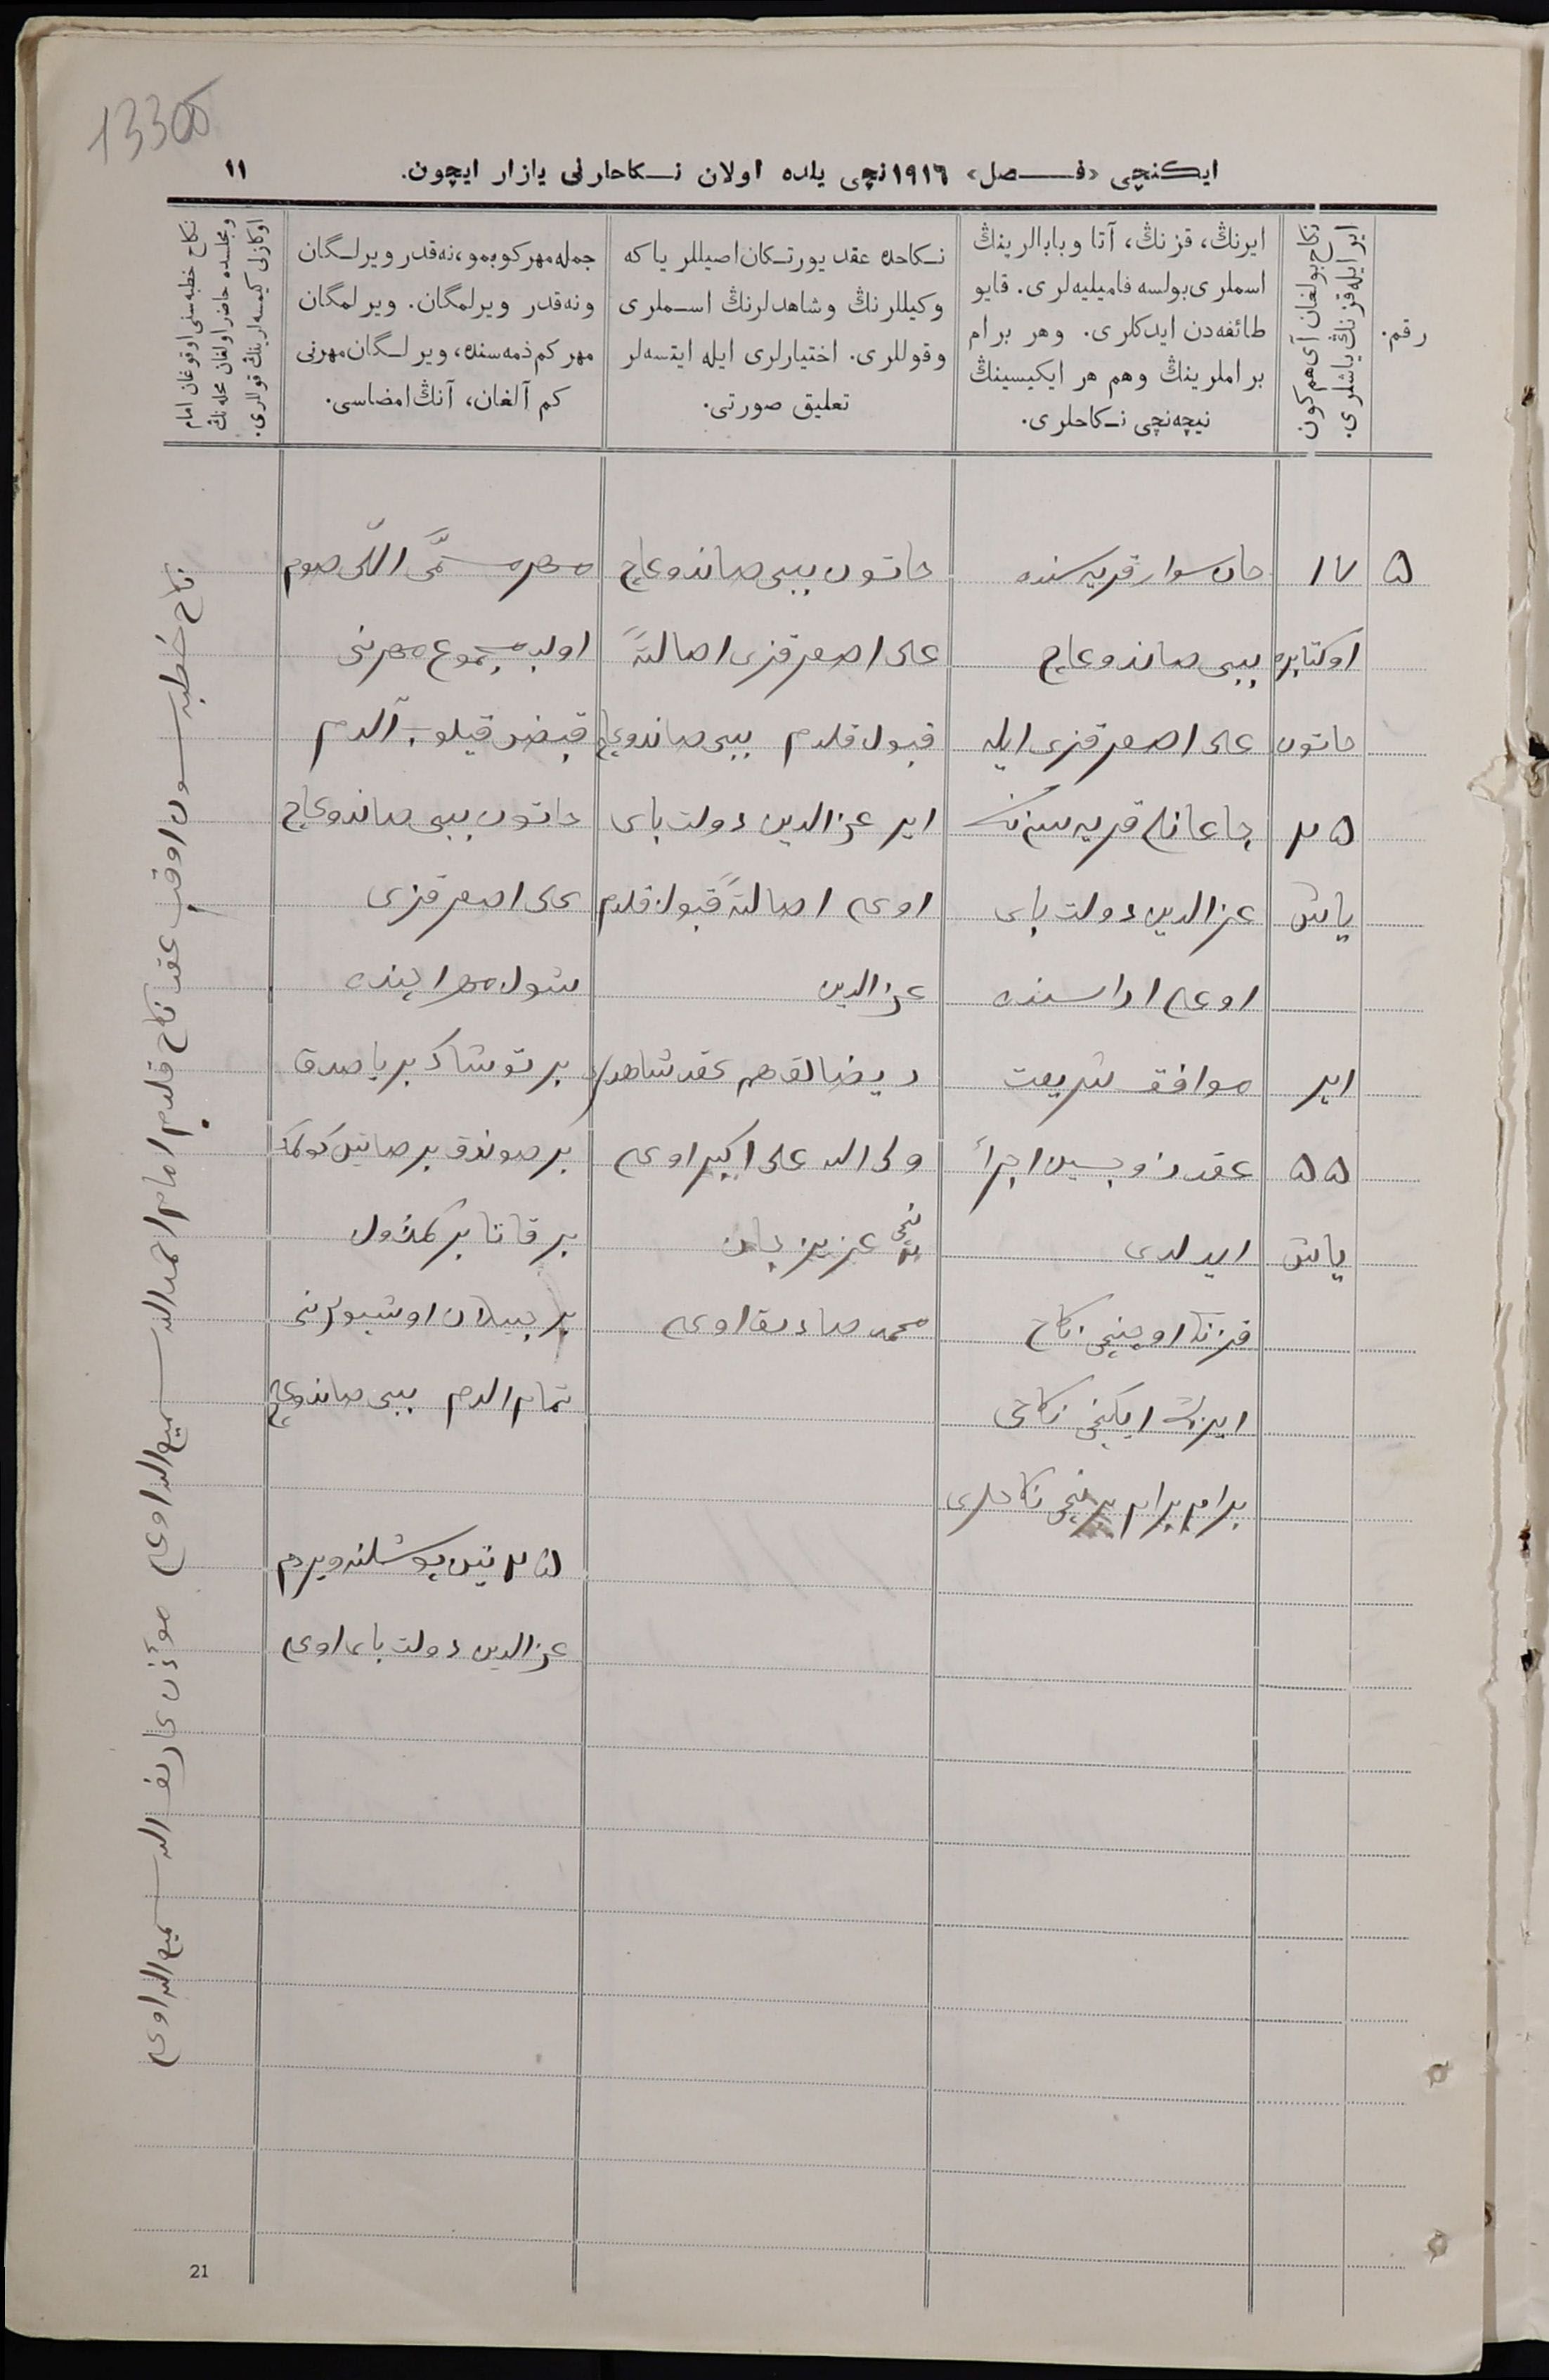 13305
ایکنچی «فـــصل» ۱۹۱٦نچی یلده اولان نـکاحلرنی یازار ایچون.
۱۱
رقم.
نکاح بولغان آی هم کون
ایر ایله قزنڭ یاشلری.
ایرنڭ، قزنڭ، آتا وبابالرینڭ
اسملری بولسه فامیلیه‌لری. قایو
طائفه‌دن ایدکلری. وهر برام
براملرینڭ وهم هر ایکیسینڭ
نیچه‌نچی نـکاحلری.
نـکاحده عقد یورتـکان اصیللر یا که
وکیللرنڭ وشاهدلرنڭ اسـملری
وقوللری. اختیارلری ایله ایتسه‌لر
تعلیق صورتی.
جمله مهر کوبمو، نه‌قدر ویرلـگان
ونه‌قدر ویرلمگان. ویرلمگان
مهر کم ذمه‌سنده، ویرلـگان مهرنی
کم آلغان، آنڭ امضاسی.
نکاح خطبه‌سنی اوقوغان امام
ومجلسده حاضر اولغان محله‌نڭ
اوکازلی کیمسه‌لرینڭ قوللری.
۵
۱۷
اوکتابره
خاتون
۲۵
یاش
ایر
۵۵
یاش
جان سوار قریه سنده
بیبی صاندوغاچ
علی اصغر قزی ایله
قریه سی نڭ
عزالدین دولت بای
اوغلی اراسنده
موافق شریعت
عقد زوجین اجراً
ایدلدی
قزنڭ اوچنچی نکاح
ایرنڭ ایکنچی نکاحی
برام برام برنچی نکاحلری
خاتون بیبی صاندوغاچ
علی اصغر قزی اصالتاً
قبول قلدم بیبی صاندوغاچ
ایر عزالدین دولت بای
اوغلی اصالتاً قبول قلدم
عزالدین
عقد شاهدلر
ولی الله علی اکبر اوغلی
نچی عزیز جان
محمد صادق اوغلی
مهر مسمّی اللی صوم
اولب مجموع مهرنی
قبض قیلوب آلدم
خاتون بیبی صاندوغاچ
علی اصغر قزی
شول مهر ایچنده
بر توشاک بر یاصدق
بر صوندق بر کولمک
بر قاتا بر
بر اوشبولارنی
تمام الدم بیبی صاندوغاچ
ویردم
عزالدین دولت بای اوغلی
نکاح خطبه سون اوقب عقد نکاح قلدم امام احمدالله سمیع الله اوغلی مؤذن عارف الله سمیع الله اوغلی
21